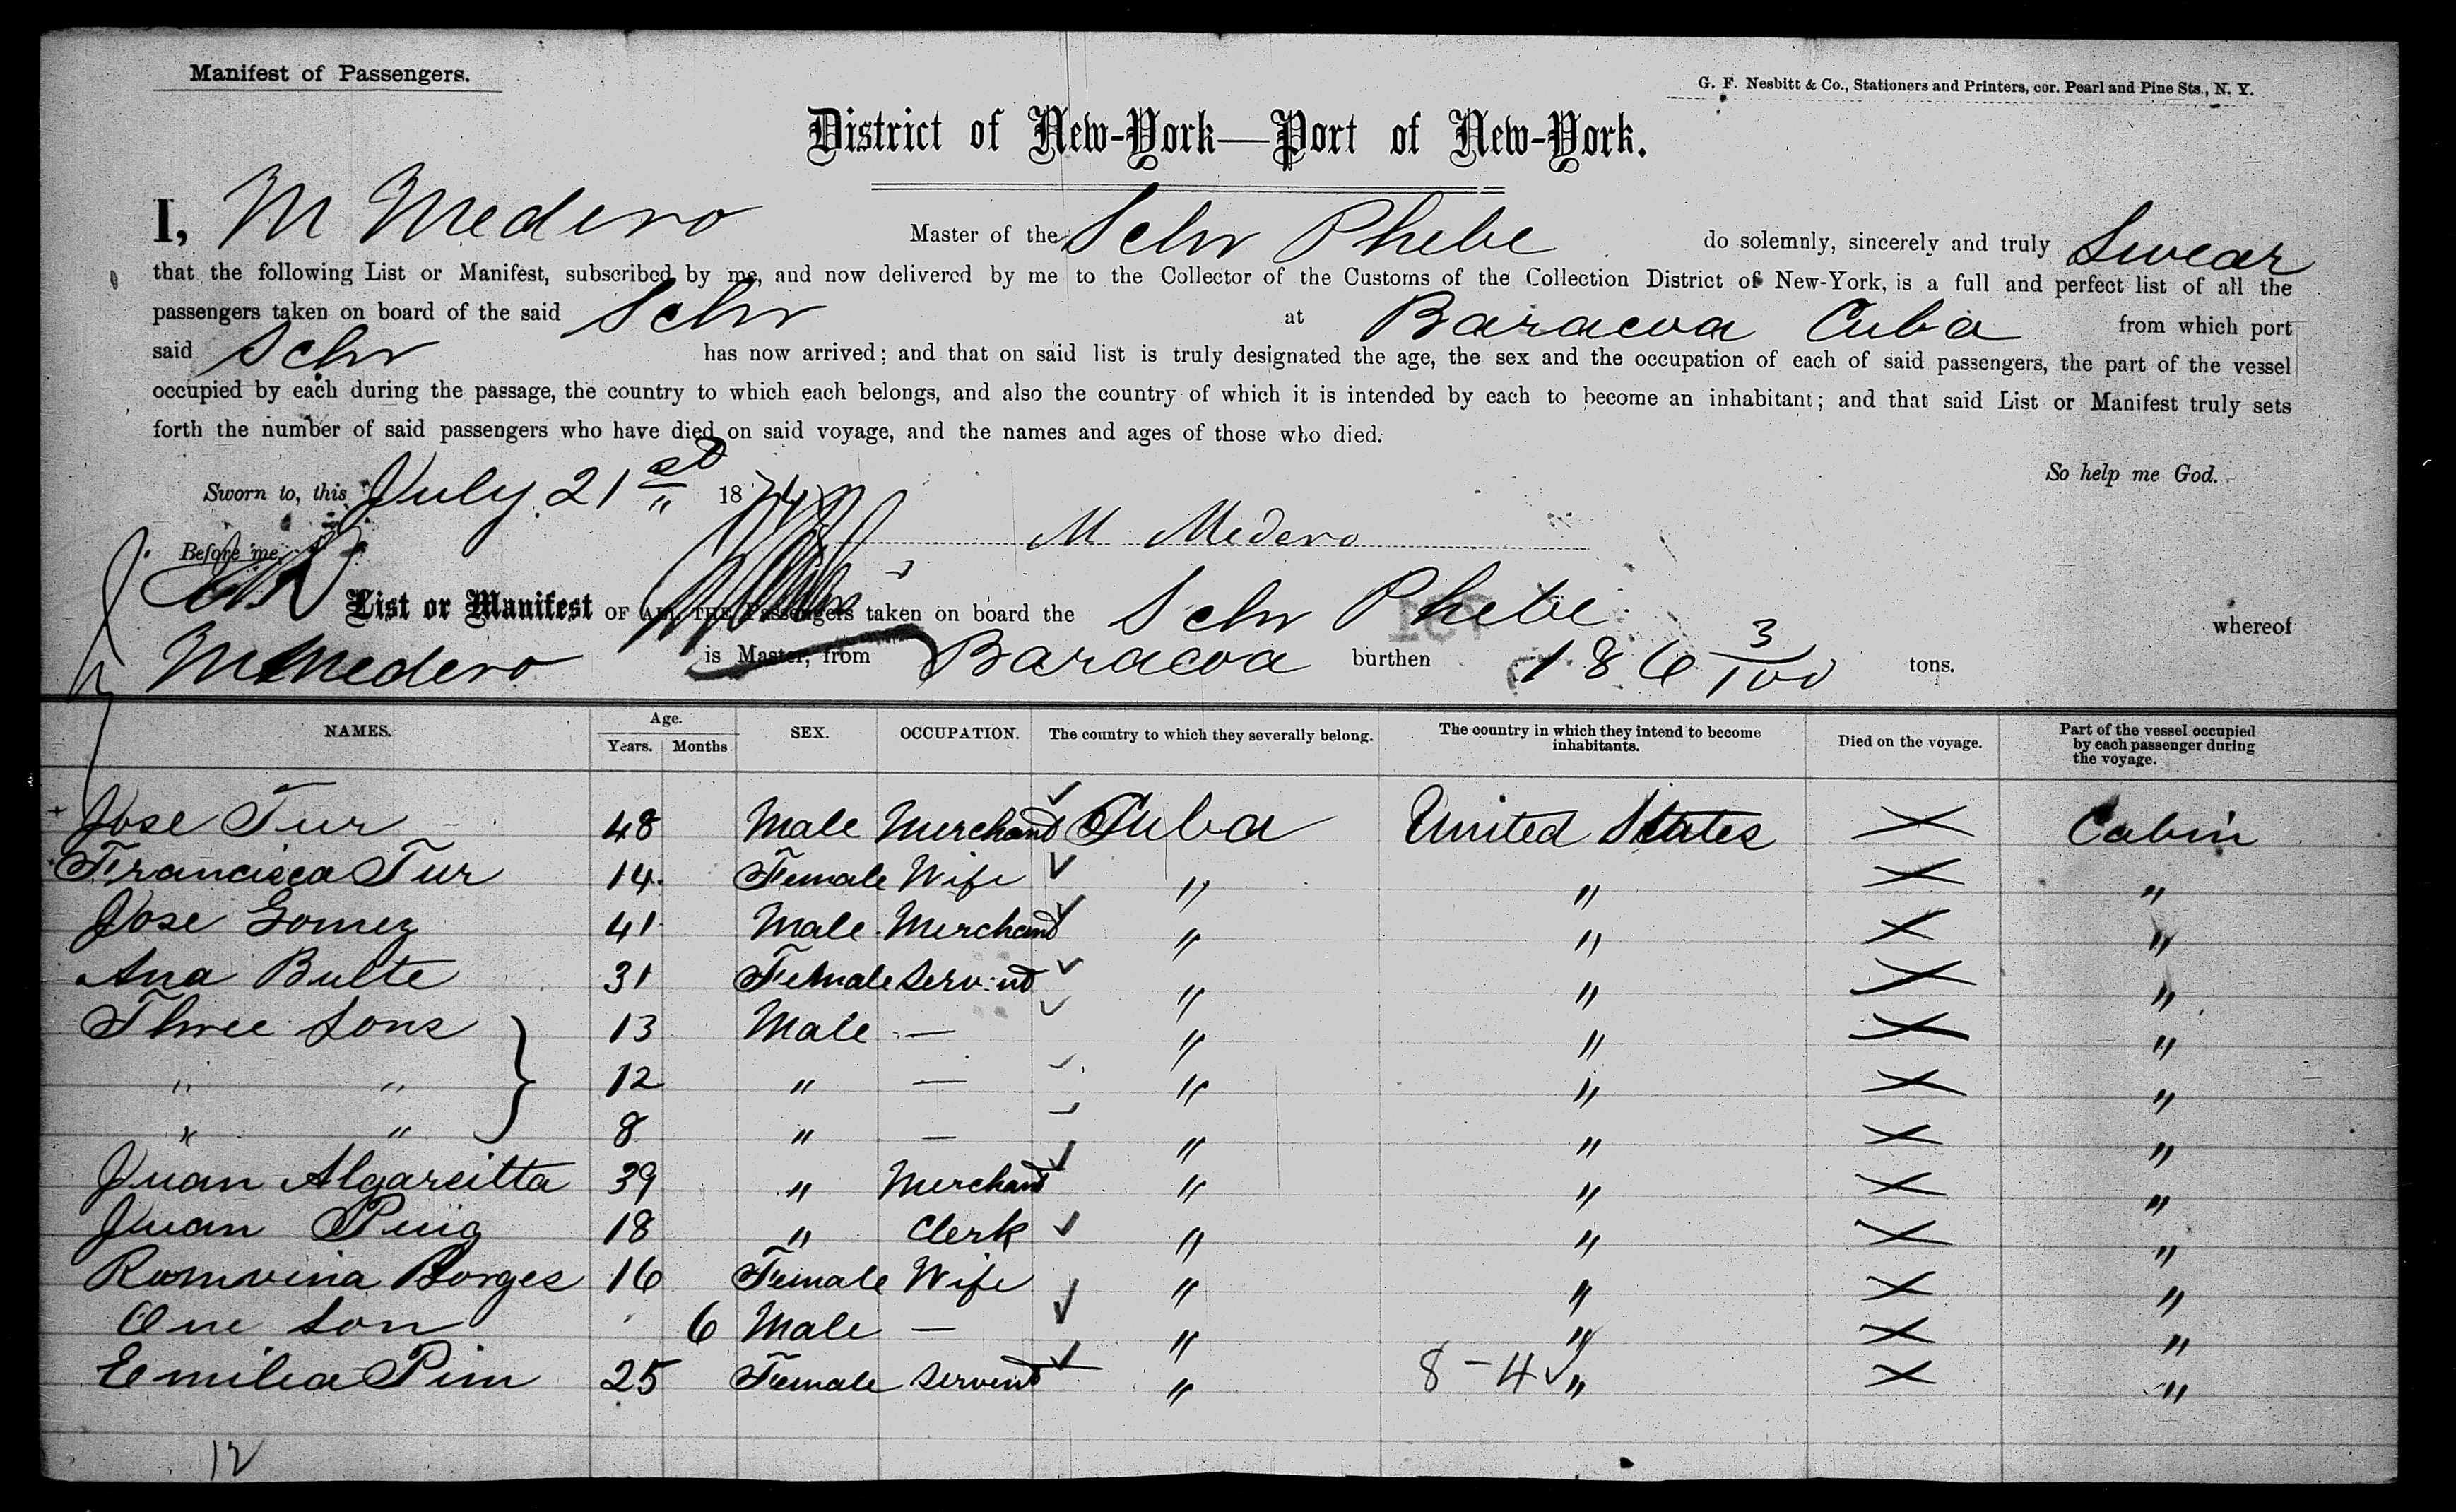 Manifest of Passengers.
G. F. Nesbitt & Co., Stationers and Printers, cor. Pearl and Pine Sts., N. Y.
District of New-York—Port of New-York.
I, M Medero Master of the Schr Phebe do solemnly, sincerely and truly Swear
that the following List or Manifest, subscribed by me, and now delivered by me to the Collector of the Customs of the Collection District of New-York, is a full and perfect list of all the
passengers taken on board of the said Schr at Baracoa Cuba from which port
said Schr has now arrived; and that on said list is truly designated the age, the sex and the occupation of each of said passengers, the part of the vessel
occupied by each during the passage, the country to which each belongs, and also the country of which it is intended by each to become an inhabitant; and that said List or Manifest truly sets
forth the number of said passengers who have died on said voyage, and the names and ages of those who died.
So help me God.
Sworn to, this July 21st 1874
M Medero
Before me,
List or Manifest OF ALL THE Passengers taken on board the Schr Phebe whereof
M Medero is Master, from Baracoa burthen 186 3/100 tons.
NAMES. Age. Years. Months SEX. OCCUPATION. The country to which they severally belong. The country in which they intend to become inhabitants. Died on the voyage. Part of the vessel occupied by each passenger during the voyage.
Jose Tur 48 Male Merchant Cuba United States Cabin
Francisca Tur 14 Female Wife " " "
Jose Gomez 41 Male Merchant " " "
Ana Bulte 31 Female Serv:nt " " "
Three Sons 13 Male — " " "
" " 12 " — " " "
" " 8 " — " " "
Juan Algarcitta 39 " Merchant " " "
Juan Puig 18 " Clerk " " "
Romvina Borges 16 Female Wife " " "
One Son 6 Male — " " "
Emilia Pim 25 Female Servent " 8-4 " "
12